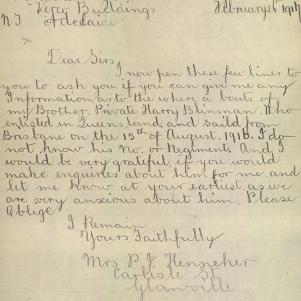 Verco Buildings February 6th 1917
N.T. Adelaide
Dear Sirs
I now pen these few lines to
you to ask you if you can give me any
Information as to the where a bouts of
my Brother. Private Harry Blinman. Who
enlisted in Queens land and saild from
Brisbane on the 15th of August. 1916. I do
not know his No. or Regiment. And I
would be very grateful if you would
make enquires about him for me and
let me know at your earliest as we
are very anxious about him. Please
Oblige
I Remain
Yours Faithfully
Mrs P. J.
Carlisle St
Glanville